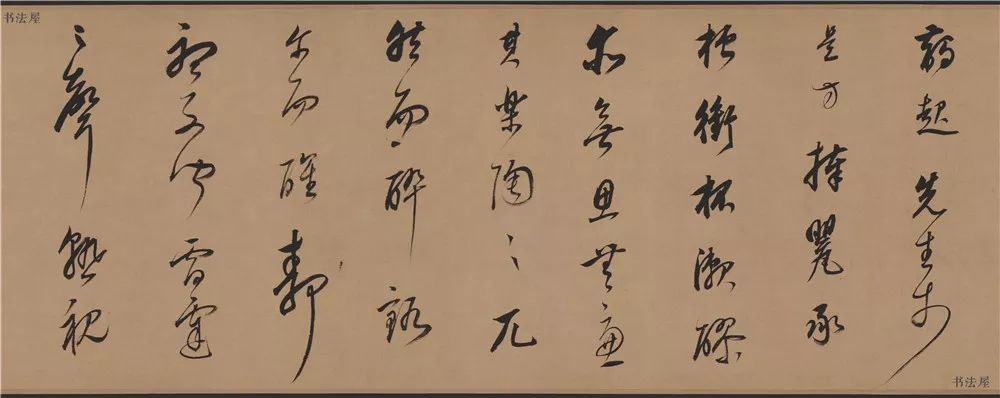 书法屋
起先生於
是方捧罌承
槽銜杯漱醪
無思無慮
其樂陶〻兀
然而醉豁
尔而醒靜
聽不聞雷霆
之聲熟視
书法屋